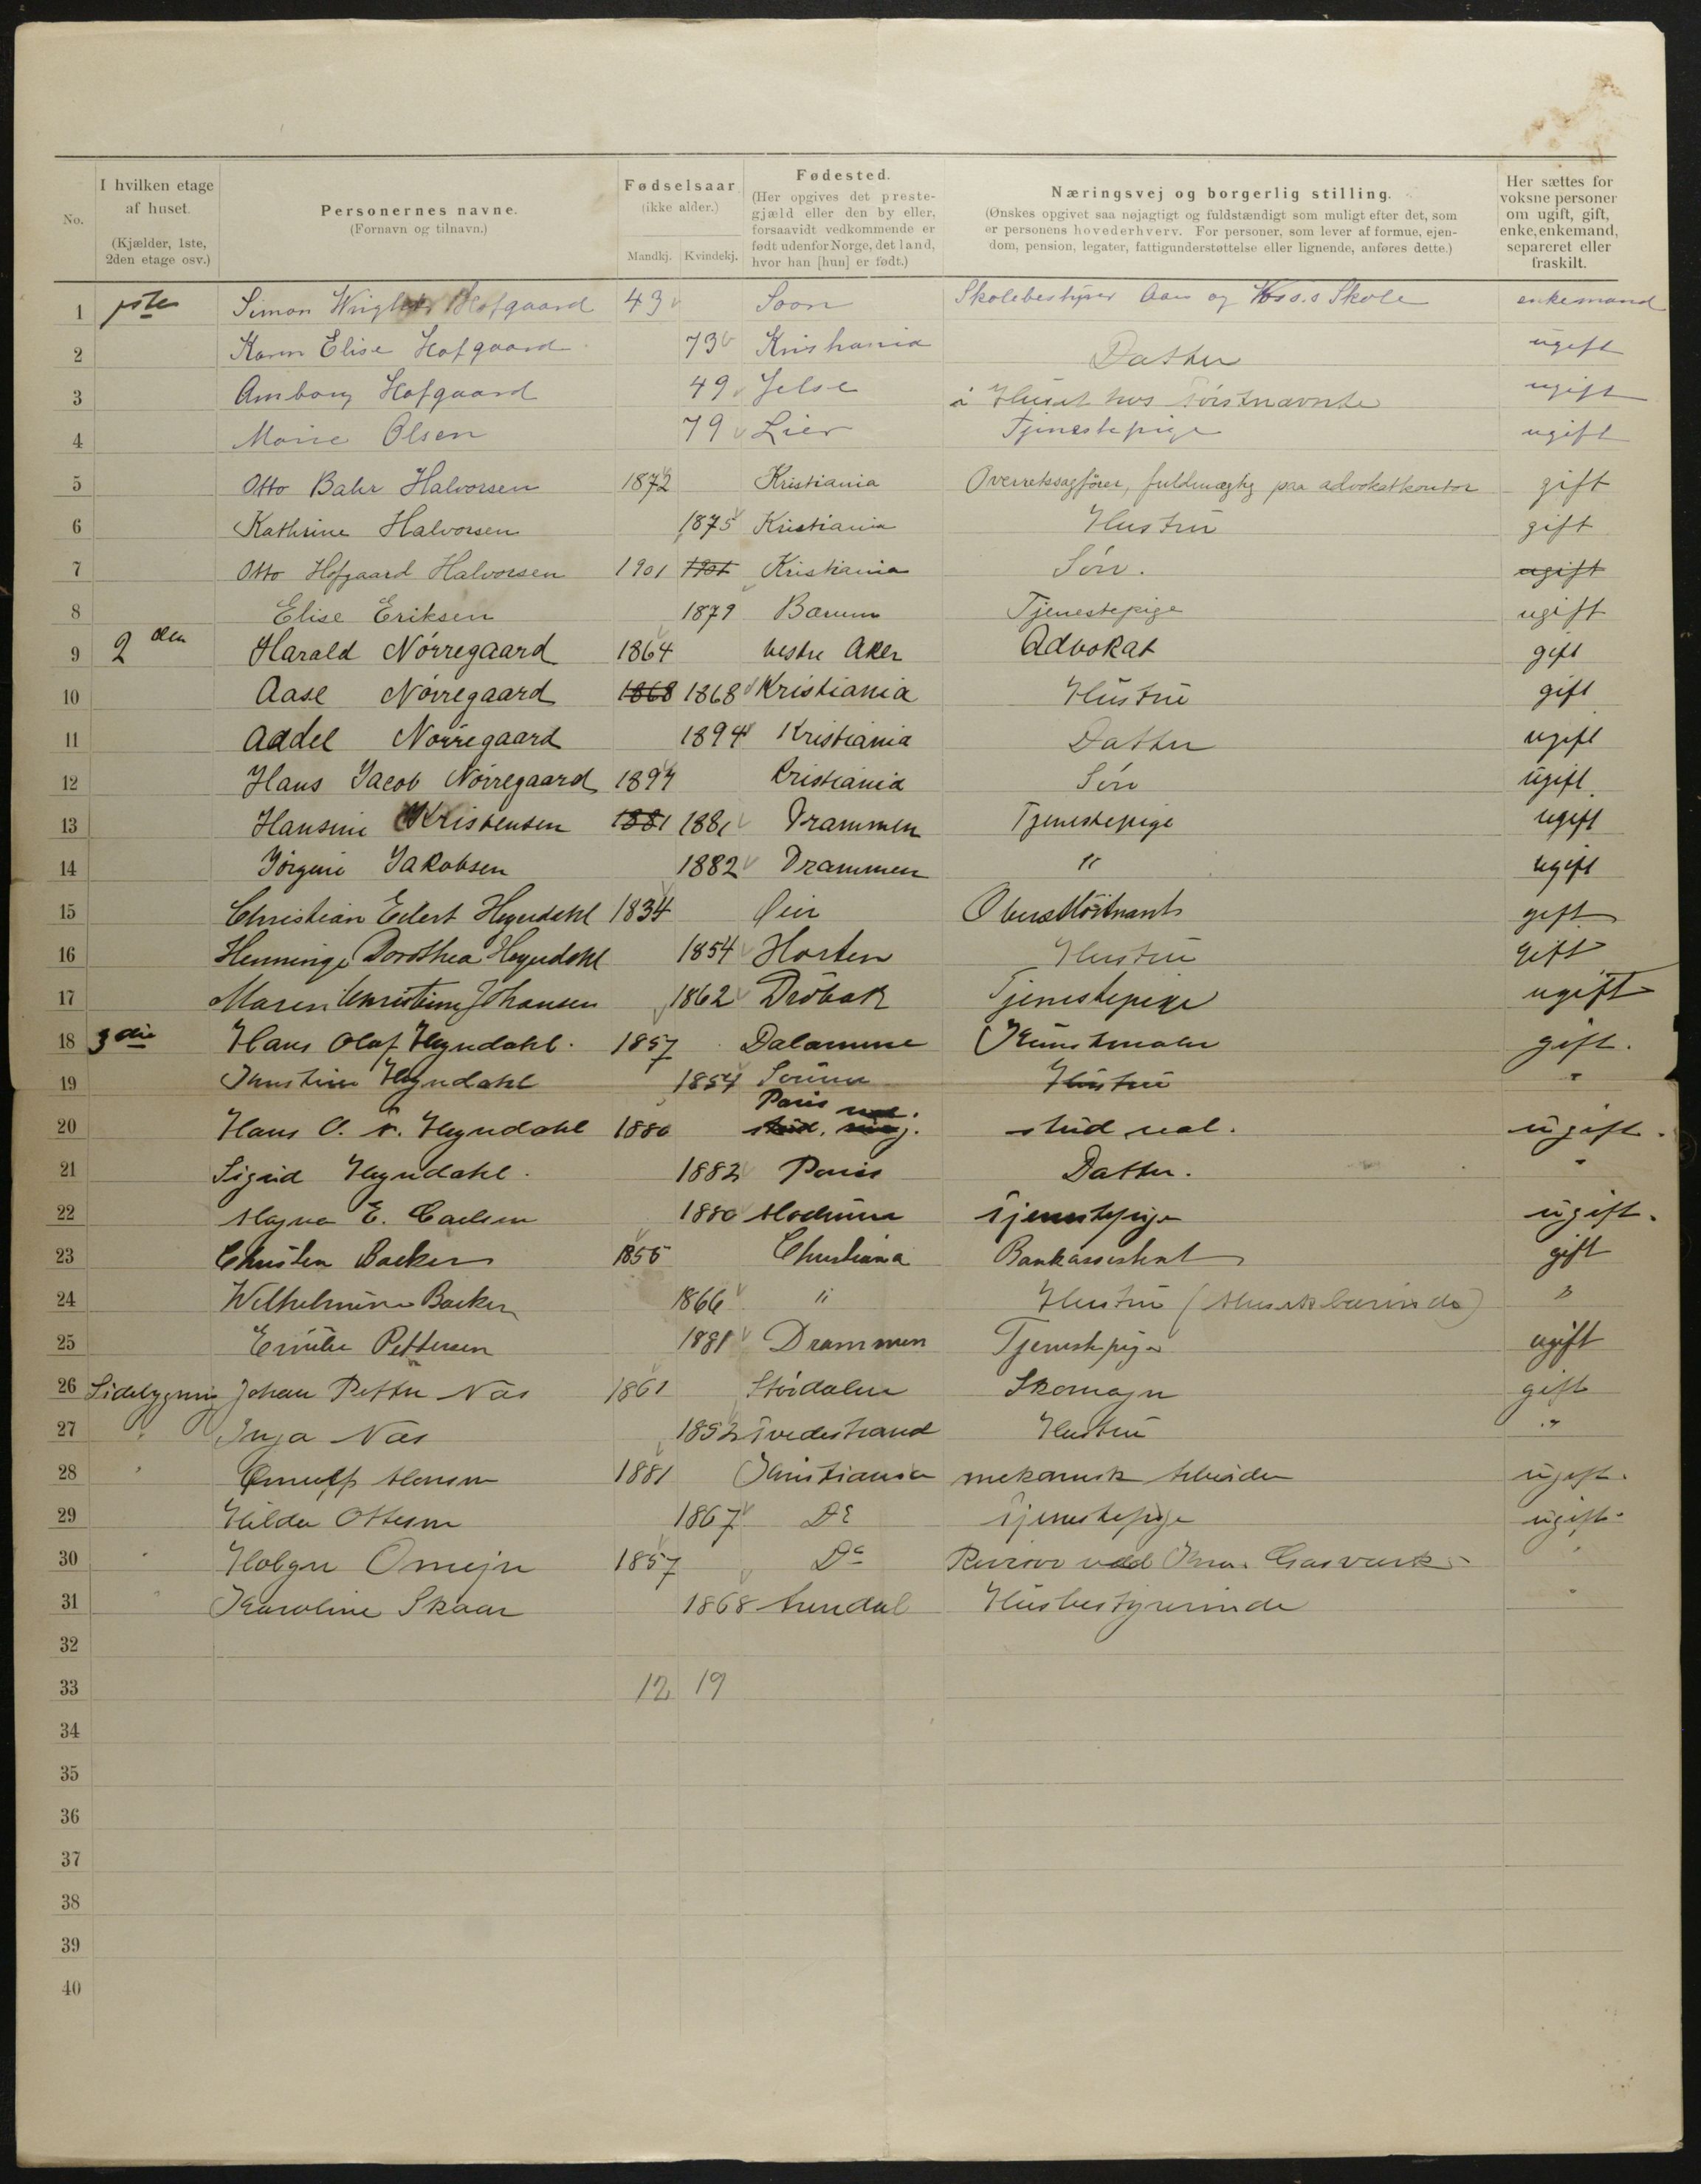 No. | I hvilken etage af huset. (Kjælder, 1ste, 2den etage osv.) | Personernes navne. (Fornavn og tilnavn.) | Fødselsaar (ikke alder.) Mandkj. | Kvindekj. | Fødested. (Her opgives det prestegjæld eller den by eller, forsaavidt vedkommende er født udenfor Norge, det land, hvor han [hun] er født.) | Næringsvej og borgerlig stilling. (Ønskes opgivet saa nøjagtigt og fuldstændigt som muligt efter det, som er personens hovederhverv. For personer, som lever af formue, ejendom, pension, legater, fattigunderstøttelse eller lignende, anføres dette.) | Her sættes for voksne personer om ugift, gift, enke, enkemand, separeret eller fraskilt.
1 1ste Simon Wright Hofgaard 43 Soon Skolebestyrer Aars og Voss.s Skole enkemand
2 Karen Elise Hofgaard 73 Kristiania Datter ugift
3 Amborg Hofgaard 49 Jelse i Huset hos Førstnævnte ugift
4 Marie Olsen 79 Lier Tjenestepige ugift
5 Otto Bahr Halvorsen 1872 Kristiania Overretssagfører, fuldmægtig paa advokatkontor gift
6 Kathrine Halvorsen 1875 Kristiania Hustru gift
7 Otto Hofgaard Halvorsen 1901 1901 Kristiania Søn. ugift
8 Elise Eriksen 1879 Bærum Tjenestepige ugift
9 2den Harald Nørregaard 1864 vestre Aker Advokat gift
10 Aase Nørregaard 1868 1868 Kristiania Hustru gift
11 Addel Nørregaard 1894 Kristiania Datter ugift
12 Hans Jacob Nørregaard 1897 Kristiania Søn ugift
13 Hansine Kristensen 1881 1881 Drammen Tjenestepige ugift
14 Jørgine Jakobsen 1882 Drammen " ugift
15 Christian Edert Heyerdahl 1834 Oberstløitnant gift
16 Henninge Dorothea Heyerdahl 1854 Horten Hustru gift
17 Maren Christine Johansen 1862 Drøbak Tjenestepige ugift
18 3die Hans Olaf Heyerdahl. 1857 Dalarne Kunstmaler gift.
19 Christine Heyerdahl 1854 Hustru "
20 Hans O. Heyerdahl 1880 Paris stud. stud real. ugift.
21 Sigrid Heyerdahl. 1882 Paris Datter. "
22 Magna E. Carlsen 1880 Modum Tjenestepige ugift.
23 Christen Backer 1855 Christiania Bankassistent gift
24 Wilhelmine Backer 1866 " Hustru (Musiklærerinde) "
25 Emilie Pettersen 1881 Drammen Tjenestepige ugift
26 Sidebygning Johan Petter Næs 1861 Størdalen Skomager gift
27 " Inga Næs 1852 Tvedestrand Hustru "
28 " Hansen 1881 Kristiania mekanisk Arbeider ugift.
29 Hilda Ottesen 1867 Do Tjenestepige ugift.
30 " Holger Omejer 1857 Do Revisor ved Kra. Gasværk "
31 " Karoline Skaar 1868 Arendal Husbestyrerinde "
32
33 12 19
34
35
36
37
38
39
40